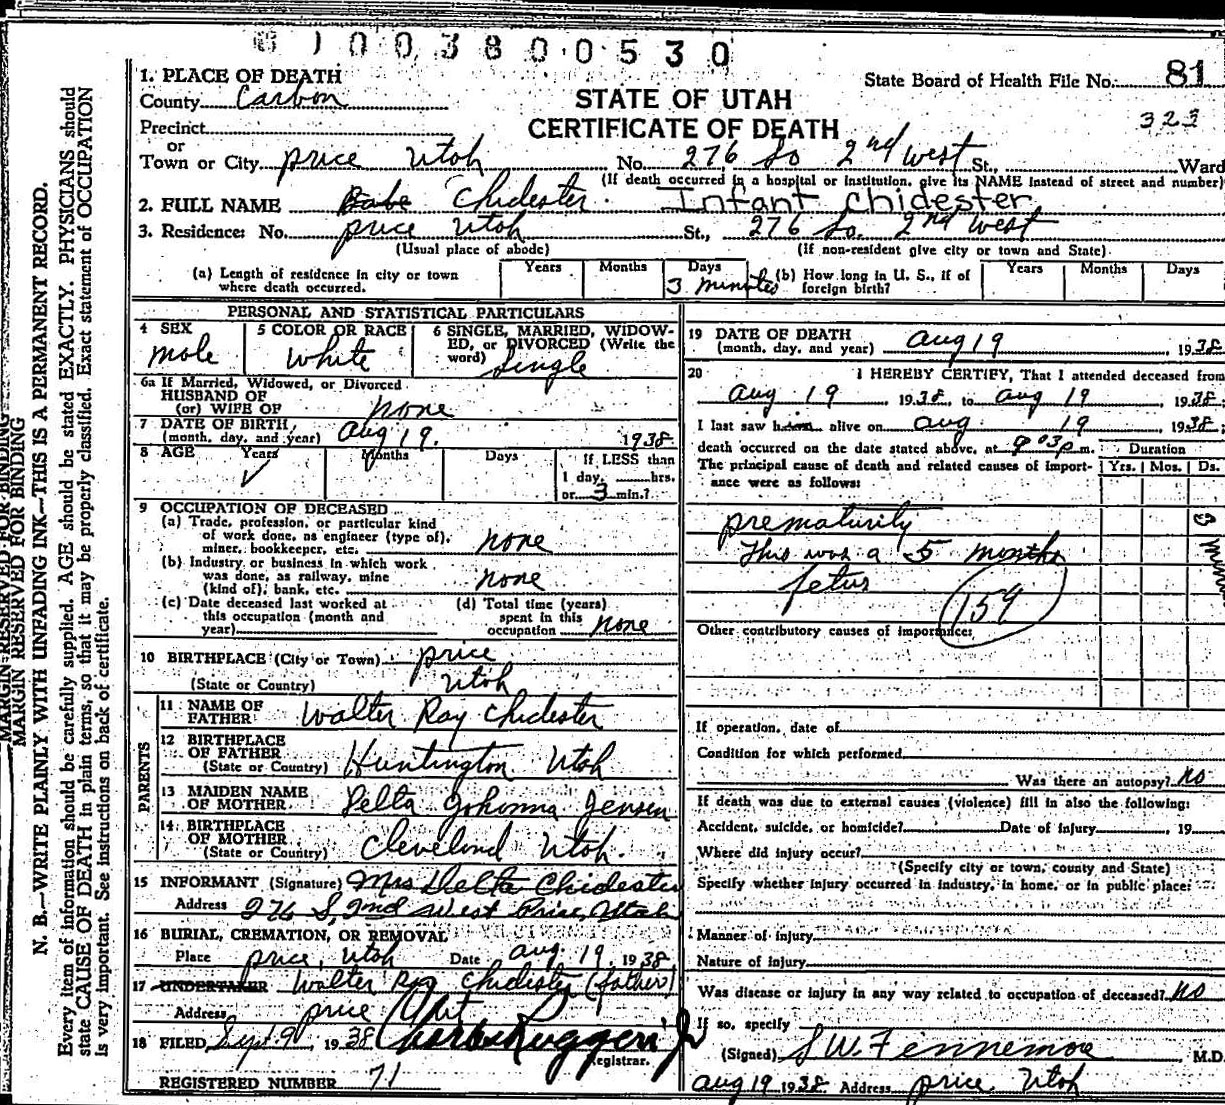 1003800530
1. PLACE OF DEATH
County Carbon
State Board of Health File No. 81
STATE OF UTAH
CERTIFICATE OF DEATH
323
Precinct
or
Town or City price Utah No. 276 So 2nd west St., Ward
(If death occurred in a hospital or institution, give its NAME instead of street and number)
2. FULL NAME Babe Chidester. Infant Chidester
3. Residence: No. price Utah St., 276 So. 2nd west
(Usual place of abode) (If non-resident give city or town and State)
(a) Length of residence in city or town where death occurred. Years Months Days 3 minutes (b) How long in U. S., if of foreign birth? Years Months Days
PERSONAL AND STATISTICAL PARTICULARS
4 SEX male
5 COLOR OR RACE White
6 SINGLE, MARRIED, WIDOWED, or DIVORCED (Write the word) Single
6a If Married, Widowed, or Divorced
HUSBAND OF
(or) WIFE OF none
7 DATE OF BIRTH
(month, day, and year) Aug 19. 1938
8 AGE Years Months Days If LESS than
1 day, hrs.
or 3 min.?
9 OCCUPATION OF DECEASED
(a) Trade, profession, or particular kind
of work done, as engineer (type of),
miner, bookkeeper, etc. none
(b) Industry or business in which work
was done, as railway, mine
(kind of), bank, etc. none
(c) Date deceased last worked at
this occupation (month and
year)
(d) Total time (years)
spent in this
occupation none
10 BIRTHPLACE (City or Town) price
(State or Country) Utah
PARENTS
11 NAME OF
FATHER Walter Ray Chidester
12 BIRTHPLACE
OF FATHER
(State or Country) Huntington Utah
13 MAIDEN NAME
OF MOTHER Delta Johanna Jensen
14 BIRTHPLACE
OF MOTHER
(State or Country) Cleveland Utah.
15 INFORMANT (Signature) Mrs Delta Chidester
Address 276 S, 2nd West Price, Utah
16 BURIAL, CREMATION, OR REMOVAL
Place price, Utah Date aug. 19, 1938
17 UNDERTAKER Walter Ray Chidester (father)
Address price Ut
18 FILED Sept 9, 1938
Registrar.
REGISTERED NUMBER 71
19 DATE OF DEATH
(month, day, and year) Aug 19, 1938
20 I HEREBY CERTIFY, That I attended deceased from
Aug 19, 1938, to Aug 19 1938;
I last saw him alive on Aug 19 1938;
death occurred on the date stated above, at 9:03 p m. Duration
The principal cause of death and related causes of importance were as follows: Yrs. Mos. Ds.
prematurity
This was a 5 months
fetus
159
Other contributory causes of importance:
If operation, date of
Condition for which performed
Was there an autopsy? no
If death was due to external causes (violence) fill in also the following:
Accident, suicide, or homicide? Date of injury , 19
Where did injury occur?
(Specify city or town, county and State)
Specify whether injury occurred in industry, in home, or in public place:
Manner of injury
Nature of injury
Was disease or injury in any way related to occupation of deceased? no
If so, specify
(Signed) S W. Fennemore M.D.
Aug 19 1938 Address price Utah
MARGIN RESERVED FOR BINDING
MARGIN RESERVED FOR BINDING
N. B.—WRITE PLAINLY WITH UNFADING INK—THIS IS A PERMANENT RECORD.
Every item of information should be carefully supplied. AGE should be stated EXACTLY. PHYSICIANS should
state CAUSE OF DEATH in plain terms, so that it may be properly classified. Exact statement of OCCUPATION
is very important. See instructions on back of certificate.